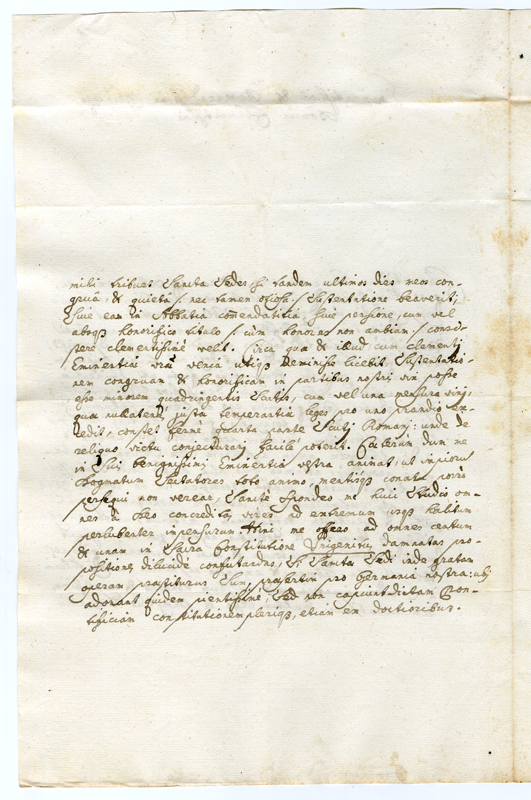 mihi tribuet Sancta Sedes, si tandem ultimos dies meos con-
gruâ, & quietâ /: nec tamen otiosâ :/ Sustentatione beaverit;
sive eam in Abbatia commendatitia, sive pensione, cum vel
absq honorifico titulo /: cùm honores non ambiam :/ consi-
stere clementissimè velit. Circa quæ & illud cum clementi
Eminentiæ venia utiq meminisse licebit, Sustentatio-
nem congruam & honorificam in partibus nostris non posse
esse minorem quadringentis Scutis, cum vel una mensura vini,
quæ nullatenus justæ temperantiæ leges pro uno prandio
excedit, constet fermè quarta parte Scuti Romani: unde de
reliquo victu conjecturari facilè poterit. Cæterum dum me
in benignissimi Eminentia vestra animat, ut impiorum
dogmatum Sectatores toto animo, mentisq conatu porrò
persequi non verear, Sanctè spondeo me huic Studio om-
nes à Deo concreditas vires ad extremum usq halitum
perlubenter impensurum. Hinc me offero ad omnes centum
& unam in Sacra Constitutione Unigenitus damnatas pro-
positiones dilucidè confutandas, si Sanctæ Sedi inde gratam
operam præstiturus sim, præsertim pro Germania nostra: ubi
adorant quidem pientissimè, sed non capiunt dictam Pon-
tificiam constitutionem pleriq, etiam ex doctioribus.